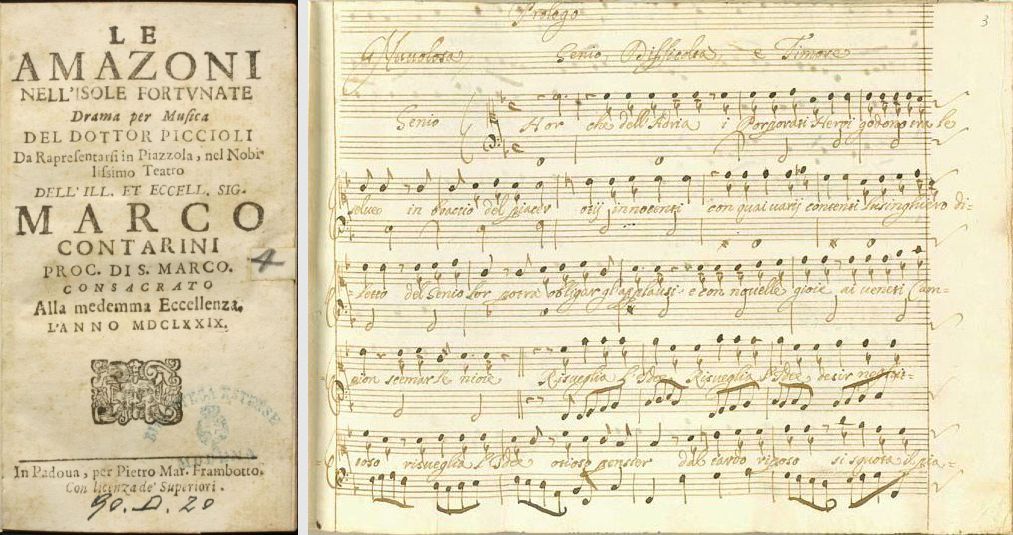 LE
AMAZONI
NELL'ISOLE FORTVNATE
Drama per Musica
DEL DOTTOR PICCIOLI
Da Rapresentarsi in Piazzola, nel Nobi-
lissimo Teatro
DELL'ILL. ET ECCELL. SIG.
MARCO
CONTARINI
PROC. DI S. MARCO.
CONSACRATO
Alla medemma Eccellenza.
L'ANNO MDCLXXIX.
4
ESTENSE
In Padoua, per Pietro Mar. Frambotto.
Con licenza de' Superiori.
90. D. 20
3
Prologo
Genio Difficoltà e Timore
Genio
Hor che dell'Adria i Porporati Heroi godono tra le
selue in braccio del piacer otij innocenti con quai varij contenti lusinghiero di-
-letto del Genio lor potrà obligar gl'applausi e con nouelle gioie ai veneti Cam-
-pion scemar le noie Risueglia l'Idee Risueglia l'Idee desir
risueglia l'Idee otioso pensier dal tardo riposo si scuota il pia-